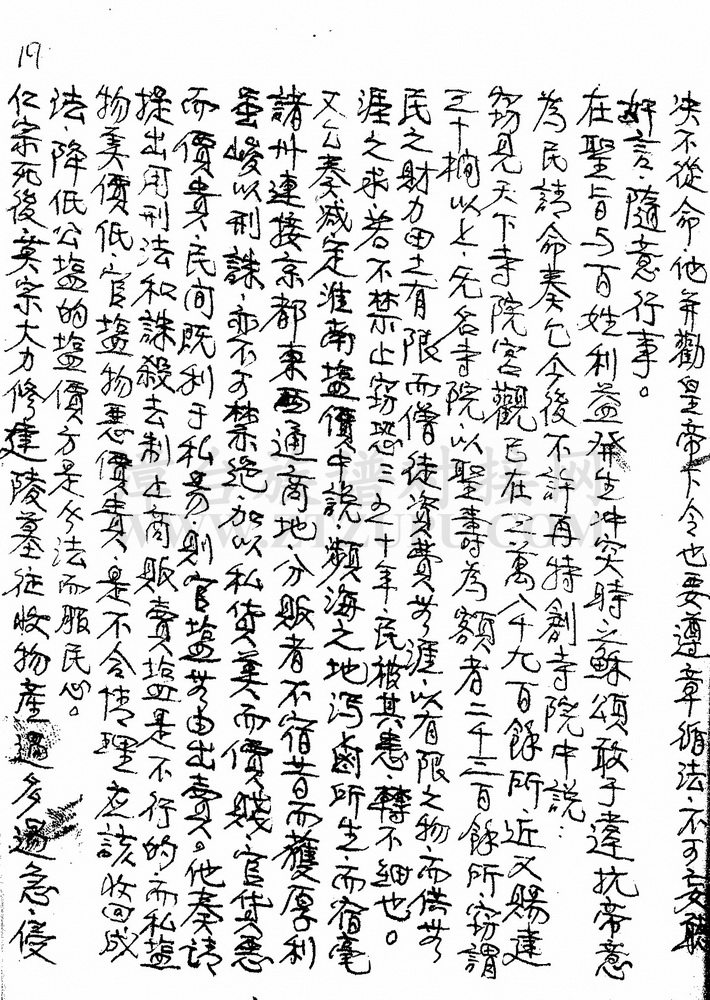 19
决不從命，他并勸皇帝下令也要遵章循法，不可妄聽
奸言，隨意行事。
在聖旨与百姓利益發生冲突時，蘇頌敢于違抗帝意
為民請命奏乞今後不許再特創寺院中説：
窃見天下寺院宫觀已在三萬八千九百餘所，近又賜建
三十間以上，无名寺院，以聖壽為額者二千三百餘所，窃謂
民之財力田土有限而僧徒資費無涯，以有限之物，而供無
涯之求，若不禁止窃恐三五十年，民被其患，轉不細也。
又么奏减定淮南塩價中説，瀕海之地瀉鹵所生，而宿亳
諸州連接京都東西通商地，分販者不宿昔而獲厚利
虽峻以刑誅，亦不可禁绝，加以私貨美而價賤，官貨悪
而價貴，民间既利于私易，則官塩無由出賣。他奏請
提出用刑法和誅殺去制止商販賣塩是不行的，而私塩
物美價低，官塩物悪價貴，是不合情理，应該收回成
法，降低公塩的塩價方是公法而服民心。
仁宗死後，英宗大力修建陵墓征收物產過多過急，侵
檀台族譜对接网
WWW.ZTZUPU.COM